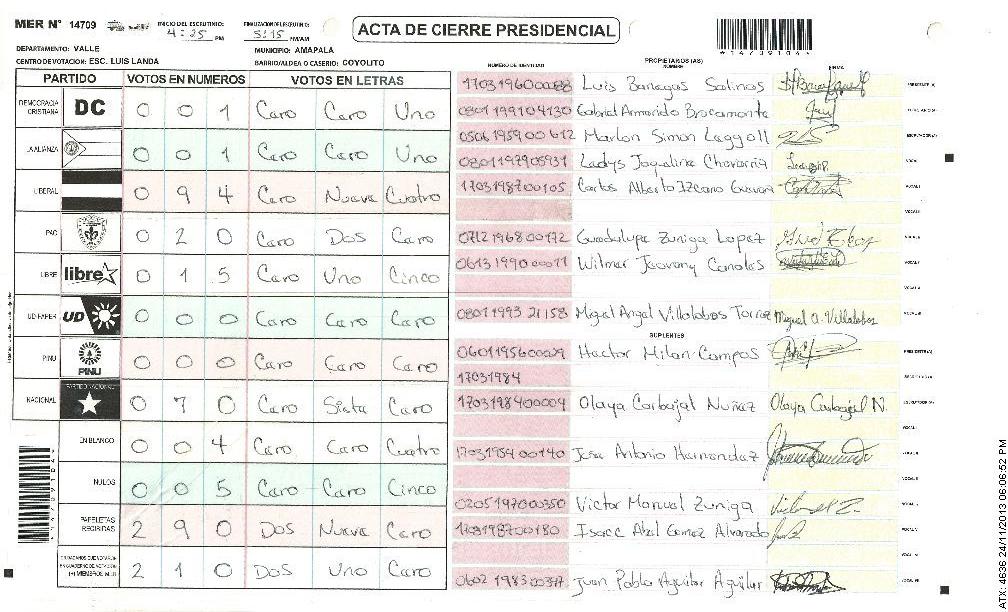 MER N° 14709
INICIO DEL ESCRUTINIO: 4:25 PM
FINALIZACION DE ESCRUTINIO: 5:15 PM/AM
ACTA DE CIERRE PRESIDENCIAL
DEPARTAMENTO: VALLE
MUNICIPIO: AMAPALA
CENTRO DE VOTACION: ESC. LUIS LANDA
BARRIO/ALDEA O CASERIO: COYOLITO
PARTIDO VOTOS EN NUMEROS VOTOS EN LETRAS
DEMOCRACIA CRISTIANA DC 0 0 1 Caro Caro Uno
LA ALIANZA 0 0 1 Caro Caro Uno
LIBERAL 0 9 4 Caro Nueve Cuatro
PAC 0 2 0 Caro Dos Caro
LIBRE libre 0 1 5 Caro Uno Cinco
UD FAPER UD 0 0 0 Caro Caro Caro
PINU PINU 0 0 0 Caro Caro Caro
NACIONAL PARTIDO NACIONAL 0 7 0 Caro Siete Caro
EN BLANCO 0 0 4 Caro Caro Cuatro
NULOS 0 0 5 Caro Caro Cinco
PAPELETAS RECIBIDAS 2 9 0 Dos Nueve Caro
2 1 0 Dos Uno Caro
NUMERO DE IDENTIDAD PROPIETARIOS (AS) NOMBRE FIRMA
Luis Banegas Salinos
0801199104130 Gabriel Armando Bracamonte
0506195900612 Marlon Simon Laggoll
0801197905931 Ladys Jaqueline Chavarria
1703198700105 Carlos Alberto
0712196800172 Guadalupe Zuniga Lopez
0613199000011 Wilmer Canales
0801199321158 Migel Angel Villalobos Torres Miguel A. Villalobos
SUPLENTES
Hector Milan Campos
17031984
1703198400009 Olaya Carbajal Nuñez Olaya Carbajal N.
1703195400140 Jose Antonio Hernandez
0205197000350 Victor Manuel Zuniga
1703198700180 Isacc Abel Gomez Alvarado
Juan Pablo Aguilar Aguilar
ATX: 4636 24/11/2013 06:06:52 PM